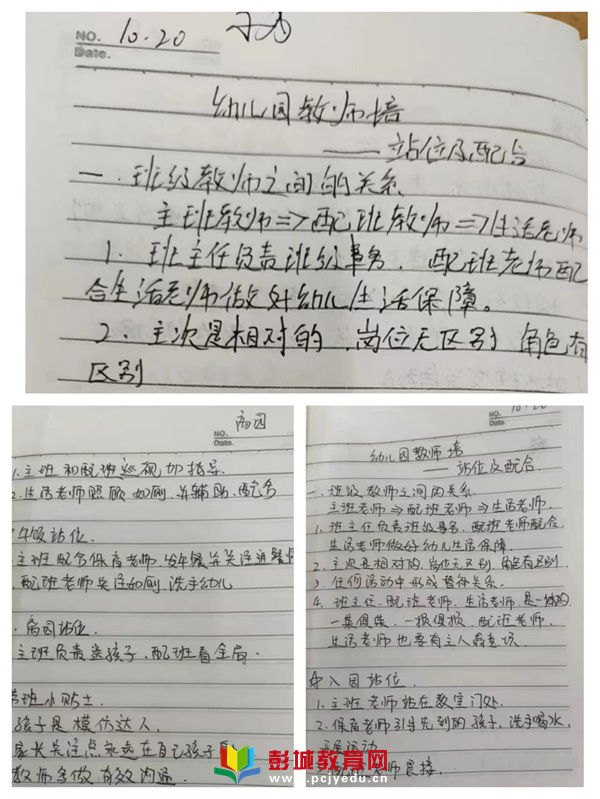 NO. 10.20
Date.
幼儿园教师培
——站位及配合
一.班级教师之间的关系
主班教师⇒配班教师⇒生活老师
1.班主任负责班级事务.配班老师配
合生活老师做好幼儿生活保障。
2.主次是相对的.岗位无区别 角色有
区别
NO. 离园
Date.
1.主班和配班巡视加指导.
2.生活老师照顾如厕.并辅助.配合
午饭站位.
主班配合保育老师.
配班老师关注如厕.洗手幼儿
离园站位.
主班负责送孩子.配班看全局.
带班小贴士.
孩子是模仿达人.
家长关注点永远在自己孩子
教师多做有效沟通.
NO. 10-20
Date.
幼儿园教师培
——站位及配合.
一.班级教师之间的关系.
主班老师⇒配班老师⇒生活老师.
1.班主任负责班级事务.配班老师配合
生活老师做好幼儿生活保障.
2.主次是相对的.岗位无区别.角色有区别.
3.任何活动中形成 关系.
4.班主任.配班老师.生活老师.是一体的
一荣俱荣.一损俱损.配班老师.
生活老师也要有主人翁意识.
入园站位.
1.主班老师站在教室门处.
2.保育老师引导先到的孩子.洗手喝水.
活动
老师晨接.
彭城教育网
www.pcjyedu.cn